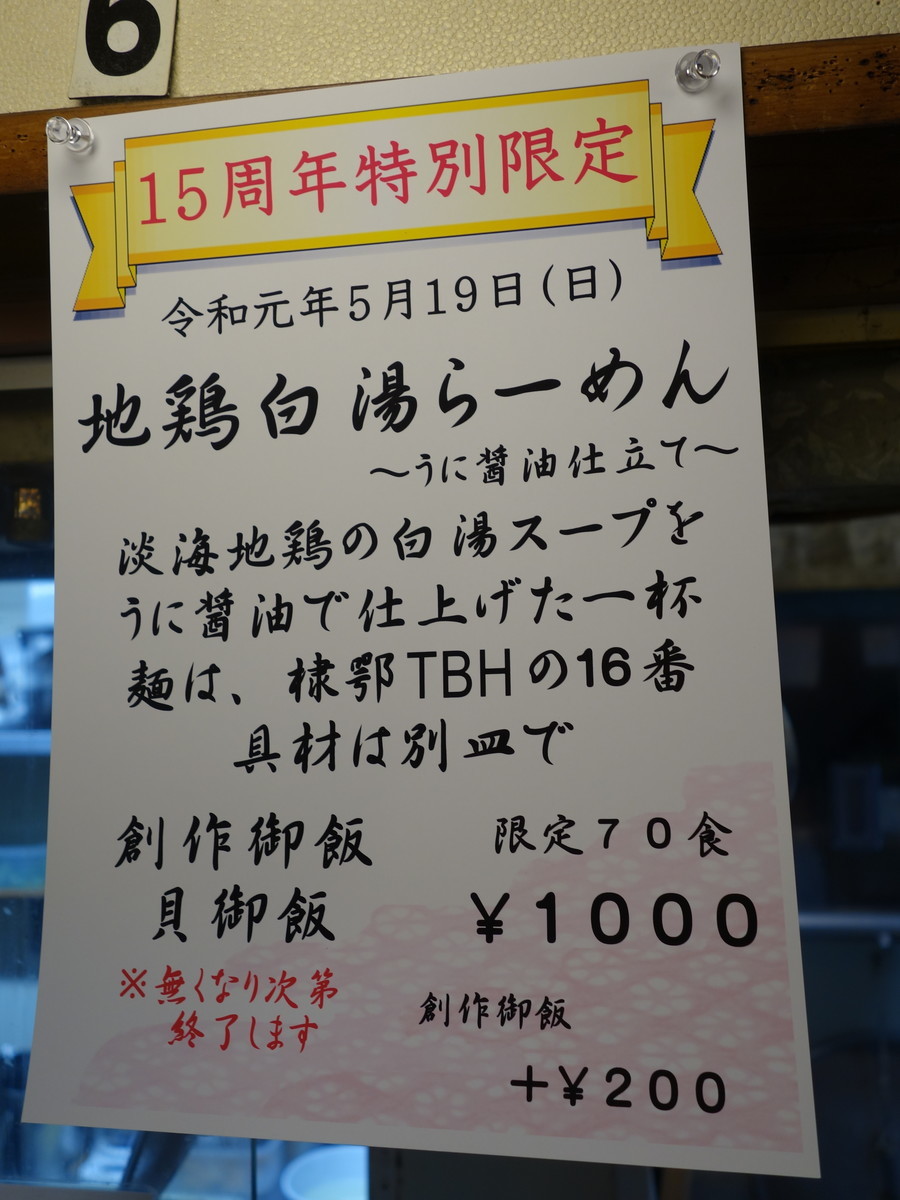 6
15周年特別限定
令和元年5月19日(日)
地鶏白湯らーめん
～うに醤油仕立て～
淡海地鶏の白湯スープを
うに醤油で仕上げた一杯
麺は、棣鄂TBHの16番
具材は別皿で
創作御飯
貝御飯
※無くなり次第
終了します
限定70食
¥1000
創作御飯
+¥200